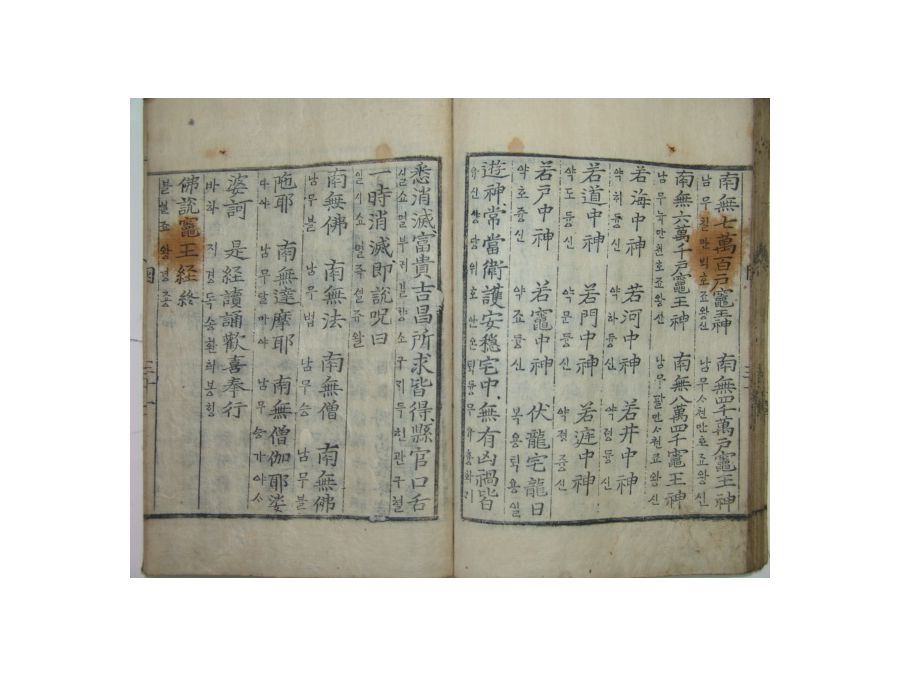 南無七萬百戸竈王神 南無四千萬戸竈王神
남무칠만빅호죠왕신 남무사쳔만호죠왕신
南無六萬千戸竈王神 南無八萬四千竈王神
남무뉵만쳔호죠왕신 남무팔만사쳔죠왕신
若海中神 若河中神 若井中神
약하듕신 약졍듕신
若道中神 若門中神 若庭中神
약도듕신 약문듕신 약졍듕신
若戸中神 若竈中神 伏龍宅龍日
약호듕신 약죠듕신 복용턱용일
遊神常當衛護安穩宅中無有凶禍皆
유신샹당위호안온턱듕무유흉화
悉消滅富貴吉昌所求皆得縣官口舌
실쇼멸부귀길챵소구 득현관구셜
一時消滅即說呪曰
일시쇼멸즉셜쥬왈
南無佛 南無法 南無僧 南無佛
남무불 남무법 남무승 남무불
陁耶 南無達摩耶 南無僧伽耶娑
타야 남무달마야 남무승가야사
婆訶 是經讀誦歡喜奉行
바하 시경독숑환희봉힝
佛說竈王経終
불셜죠왕경죵